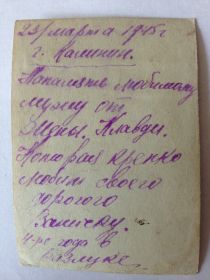 23/марта 1945г
г. Калинин.
На память любимому
мужу от
Жены. Клавди.
Которая крепко
любит своего
дорогого
4-ре года в
разлуке.